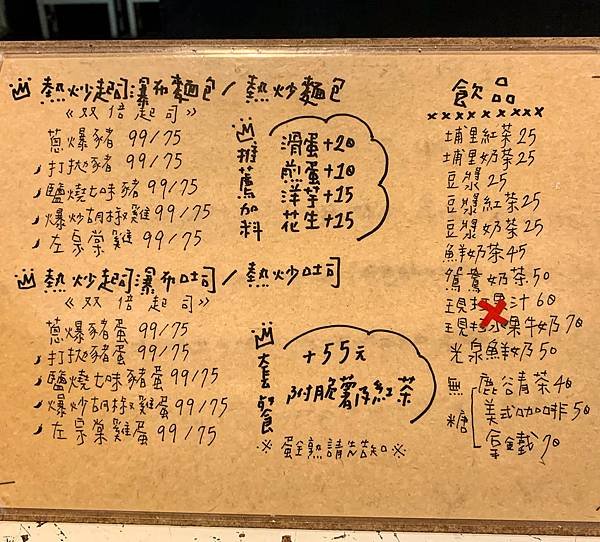 熱炒起司瀑布麵包/熱炒麵包
《双倍起司》
蔥爆豬 99/75
打拋豬 99/75
鹽燒七味豬 99/75
爆炒胡椒雞 99/75
左宗棠雞 99/75
推薦加料
滑蛋+20
煎蛋+10
洋芋+15
花生+15
熱炒起司瀑布吐司/熱炒吐司
《双倍起司》
蔥爆豬蛋 99/75
打拋豬蛋 99/75
鹽燒七味豬蛋 99/75
爆炒胡椒雞蛋 99/75
左宗棠雞蛋 99/75
套餐
+55元
附脆薯仔紅茶
※蛋全熟請先告知※
飲品
xxxxxxxxx
埔里紅茶25
埔里奶茶25
豆漿 25
豆漿紅茶25
豆漿奶茶25
鮮奶茶45
鴛鴦奶茶50
現打果汁60
現打水果牛奶70
光泉鮮奶50
無糖
鹿谷青茶40
美式咖啡50
拿鐵70